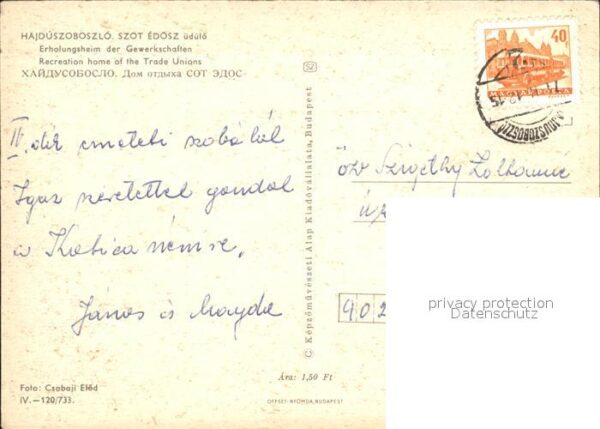 HAJDÚSZOBOSZLÓ. SZOT ÉDOSZ üdülő
Erholungsheim der Gewerkschaften
Recreation home of the Trade Unions
ХАЙДУСОБОСЛО. Дом отдыха СОТ ЭДОС
IV. dik emeleti szobából
Igaz szeretettel gondol
a Katica nénire,
János és Magda
Foto: Csabaji Előd
IV.—120/733.
© Képzőművészeti Alap Kiadóvállalata, Budapest
Ára: 1,50 Ft
OFFSET-NYOMDA, BUDAPEST
40
MAGYAR POSTA
HAJDUSZOBOSZLÓ
özv Szigethy Zoltánné
902
privacy protection
Datenschutz